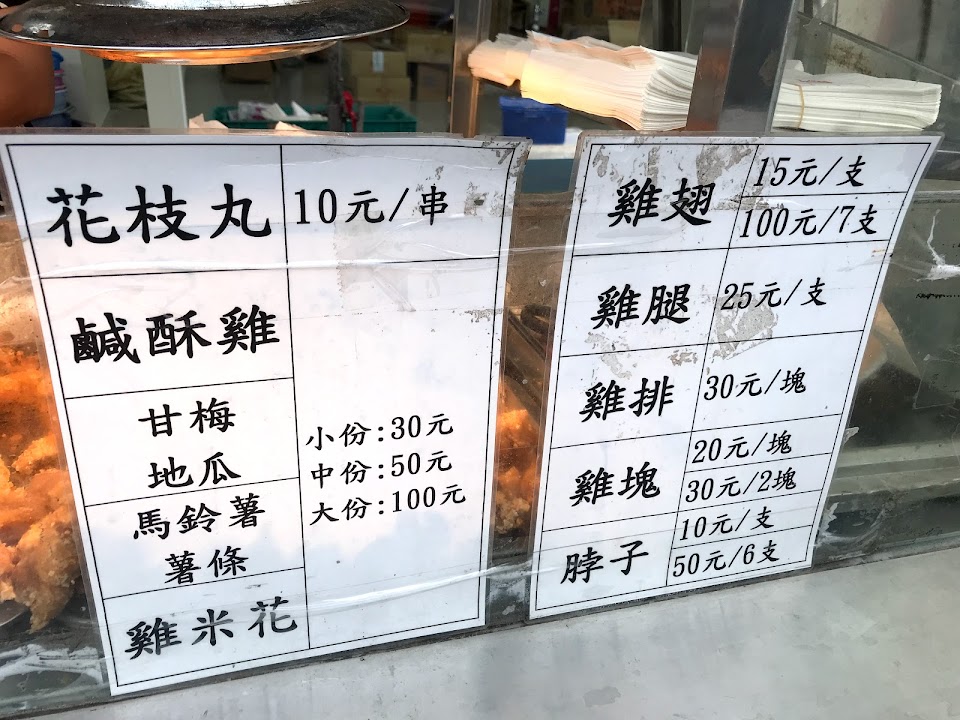 花枝丸 10元/串
鹹酥雞
甘梅
地瓜
馬鈴薯
薯條
雞米花
小份:30元
中份:50元
大份:100元
雞翅
15元/支
100元/7支
雞腿 25元/支
雞排 30元/塊
雞塊
20元/塊
30元/2塊
脖子
10元/支
50元/6支